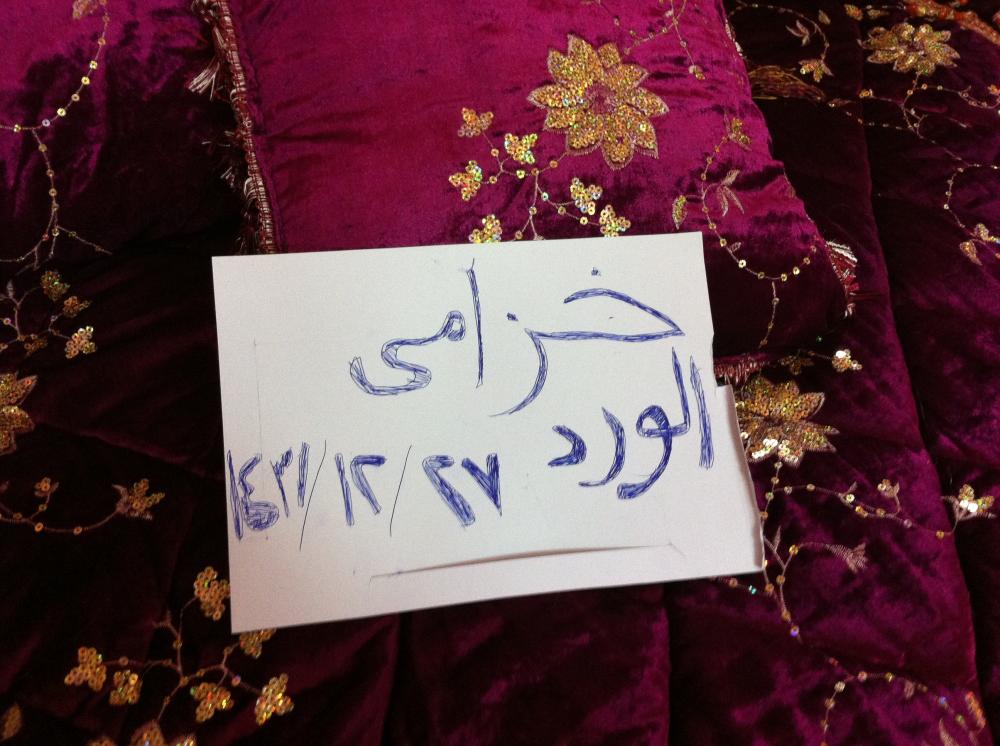 خزامى
الورد
١٤٣١/١٢/٢٧